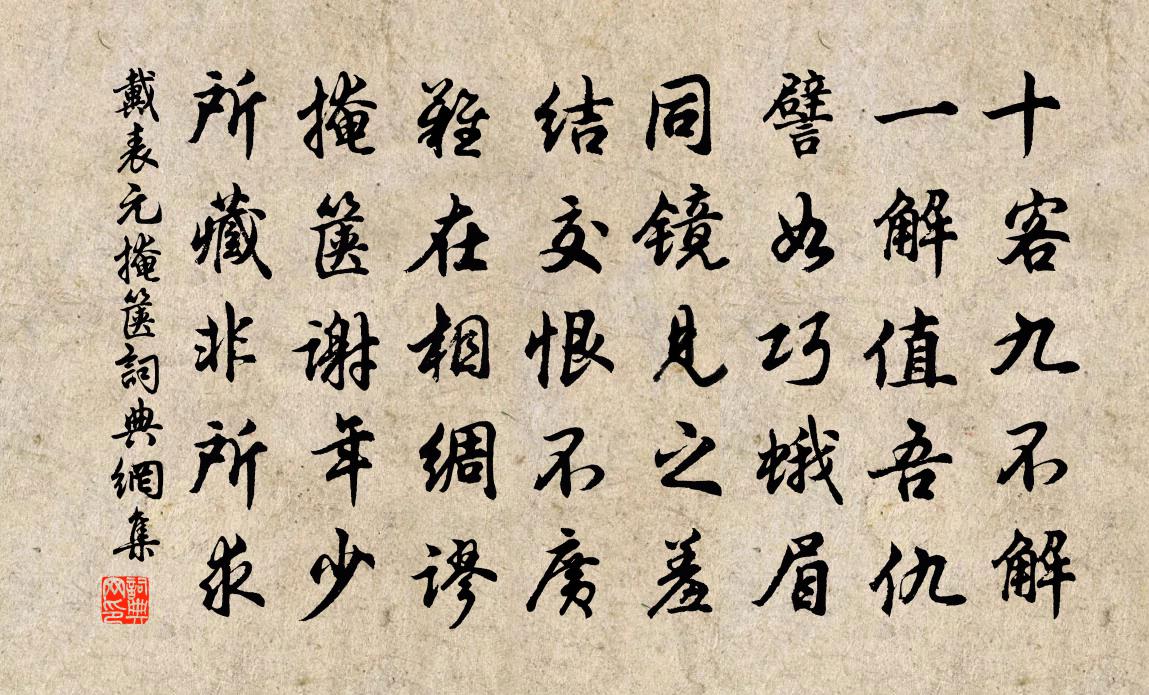 十客九不解
一解值吾仇
譬如巧蛾眉
同镜見之羞
结交恨不廣
難在相綢謬
掩箧謝年少
所藏非所求
戴表元掩箧詞典網集
詞典
网印